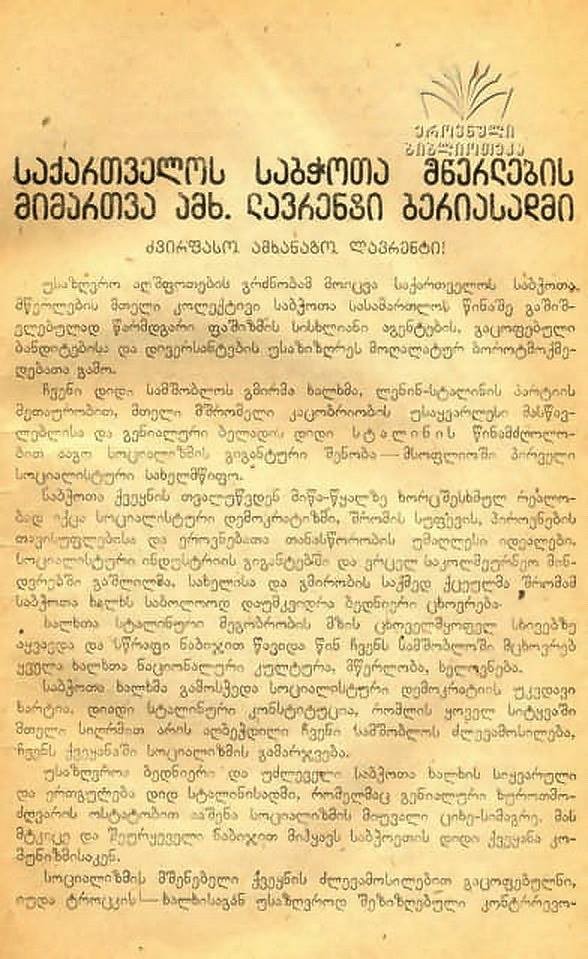 ეროვნული
ბიბლიოთეკა
საქართველოს საბჭოთა მწერლების
მიმართვა ამხ. ლავრენტი ბერიასადმი
ძვირფასო ამხანაგო ლავრენტი!
უსაზღვრო აღშფოთების გრძნობამ მოიცვა საქართველოს საბჭოთა
მწერლების მთელი კოლექტივი საბჭოთა სასამართლოს წინაშე გაშიშ-
ვლებულად წარმდგარი ფაშიზმის სისხლიანი აგენტების, გაცოფებული
ბანდიტებისა და დივერსანტების უსაზიზღრეს მოღალატურ ბოროტმოქმე-
დებათა გამო.
ჩვენი დიდი სამშობლოს გმირმა ხალხმა, ლენინ-სტალინის პარტიის
მეთაურობით, მთელი მშრომელი კაცობრიობის უსაყვარლესი მასწავ-
ლებლისა და გენიალური ბელადის დიდი სტალინის წინამძღოლო-
ბით ააგო სოციალიზმის გიგანტური შენობა — მსოფლიოში პირველი
სოციალისტური სახელმწიფო.
საბჭოთა ქვეყნის თვალუწვდენ მიწა-წყალზე ხორცშესხმულ რეალო-
ბად იქცა სოციალისტური დემოკრატიზმი, შრომის სუფევის, პიროვნების
თავისუფლებისა და ეროვნებათა თანასწორობის უმაღლესი იდეალები.
სოციალისტური ინდუსტრიის გიგანტებში და ვრცელ საკოლმეურნეო მინ-
დვრებში გაშლილმა, სახელისა და გმირობის საქმედ ქცეულმა შრომამ
საბჭოთა ხალხს საბოლოოდ დაუმკვიდრა ბედნიერი ცხოვრება.
ხალხთა სტალინური მეგობრობის მზის ცხოველმყოფელ სხივებზე
აყვავდა და სწრაფი ნაბიჯით წავიდა წინ ჩვენს სამშობლოში მცხოვრებ
ყველა ხალხთა ნაციონალური კულტურა, მწერლობა, ხელოვნება.
საბჭოთა ხალხმა გამოსჭედა სოციალისტური დემოკრატიის უკვდავი
ხარტია, დიადი სტალინური კონსტიტუცია, რომლის ყოველ სიტყვაში
მთელი სიღრმით არის აღბეჭდილი ჩვენი სამშობლოს ძლევამოსილება,
ჩვენს ქვეყანაში სოციალიზმის გამარჯვება.
უსაზღვროა ბედნიერი და უძლეველი საბჭოთა ხალხის სიყვარული
და ერთგულება დიდ სტალინისადმი, რომელმაც გენიალური ხუროთმო-
ძღვარის ოსტატობით ააშენა სოციალიზმის მიუვალი ციხე-სიმაგრე, მას
მტკიცე და შეურყეველი ნაბიჯით მიჰყავს საბჭოეთის დიდი ქვეყანა კო-
მუნიზმისაკენ.
სოციალიზმის მშენებელი ქვეყნის ძლევამოსილებით გაცოფებულნი,
იუდა ტროცკის — ხალხისაგან უსაზღვროდ შეზიზღებული კონტრრევო-